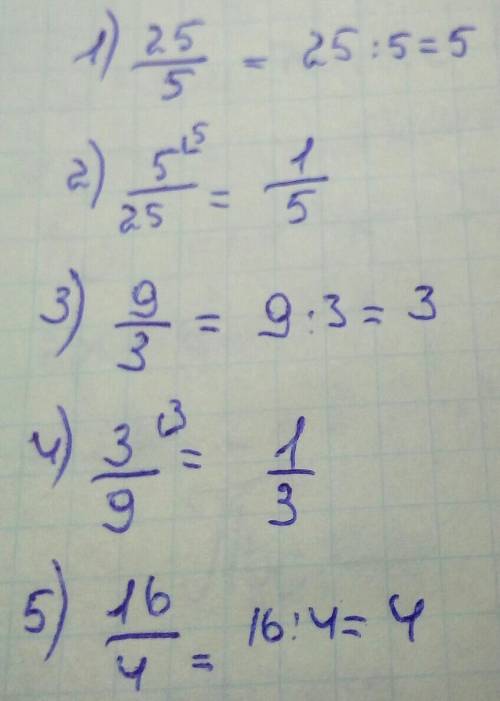 1) 25/5 = 25:5=5
2) 5⌞5/25 = 1/5
3) 9/3 = 9:3=3
4) 3⌞3/9 = 1/3
5) 16/4 = 16:4=4